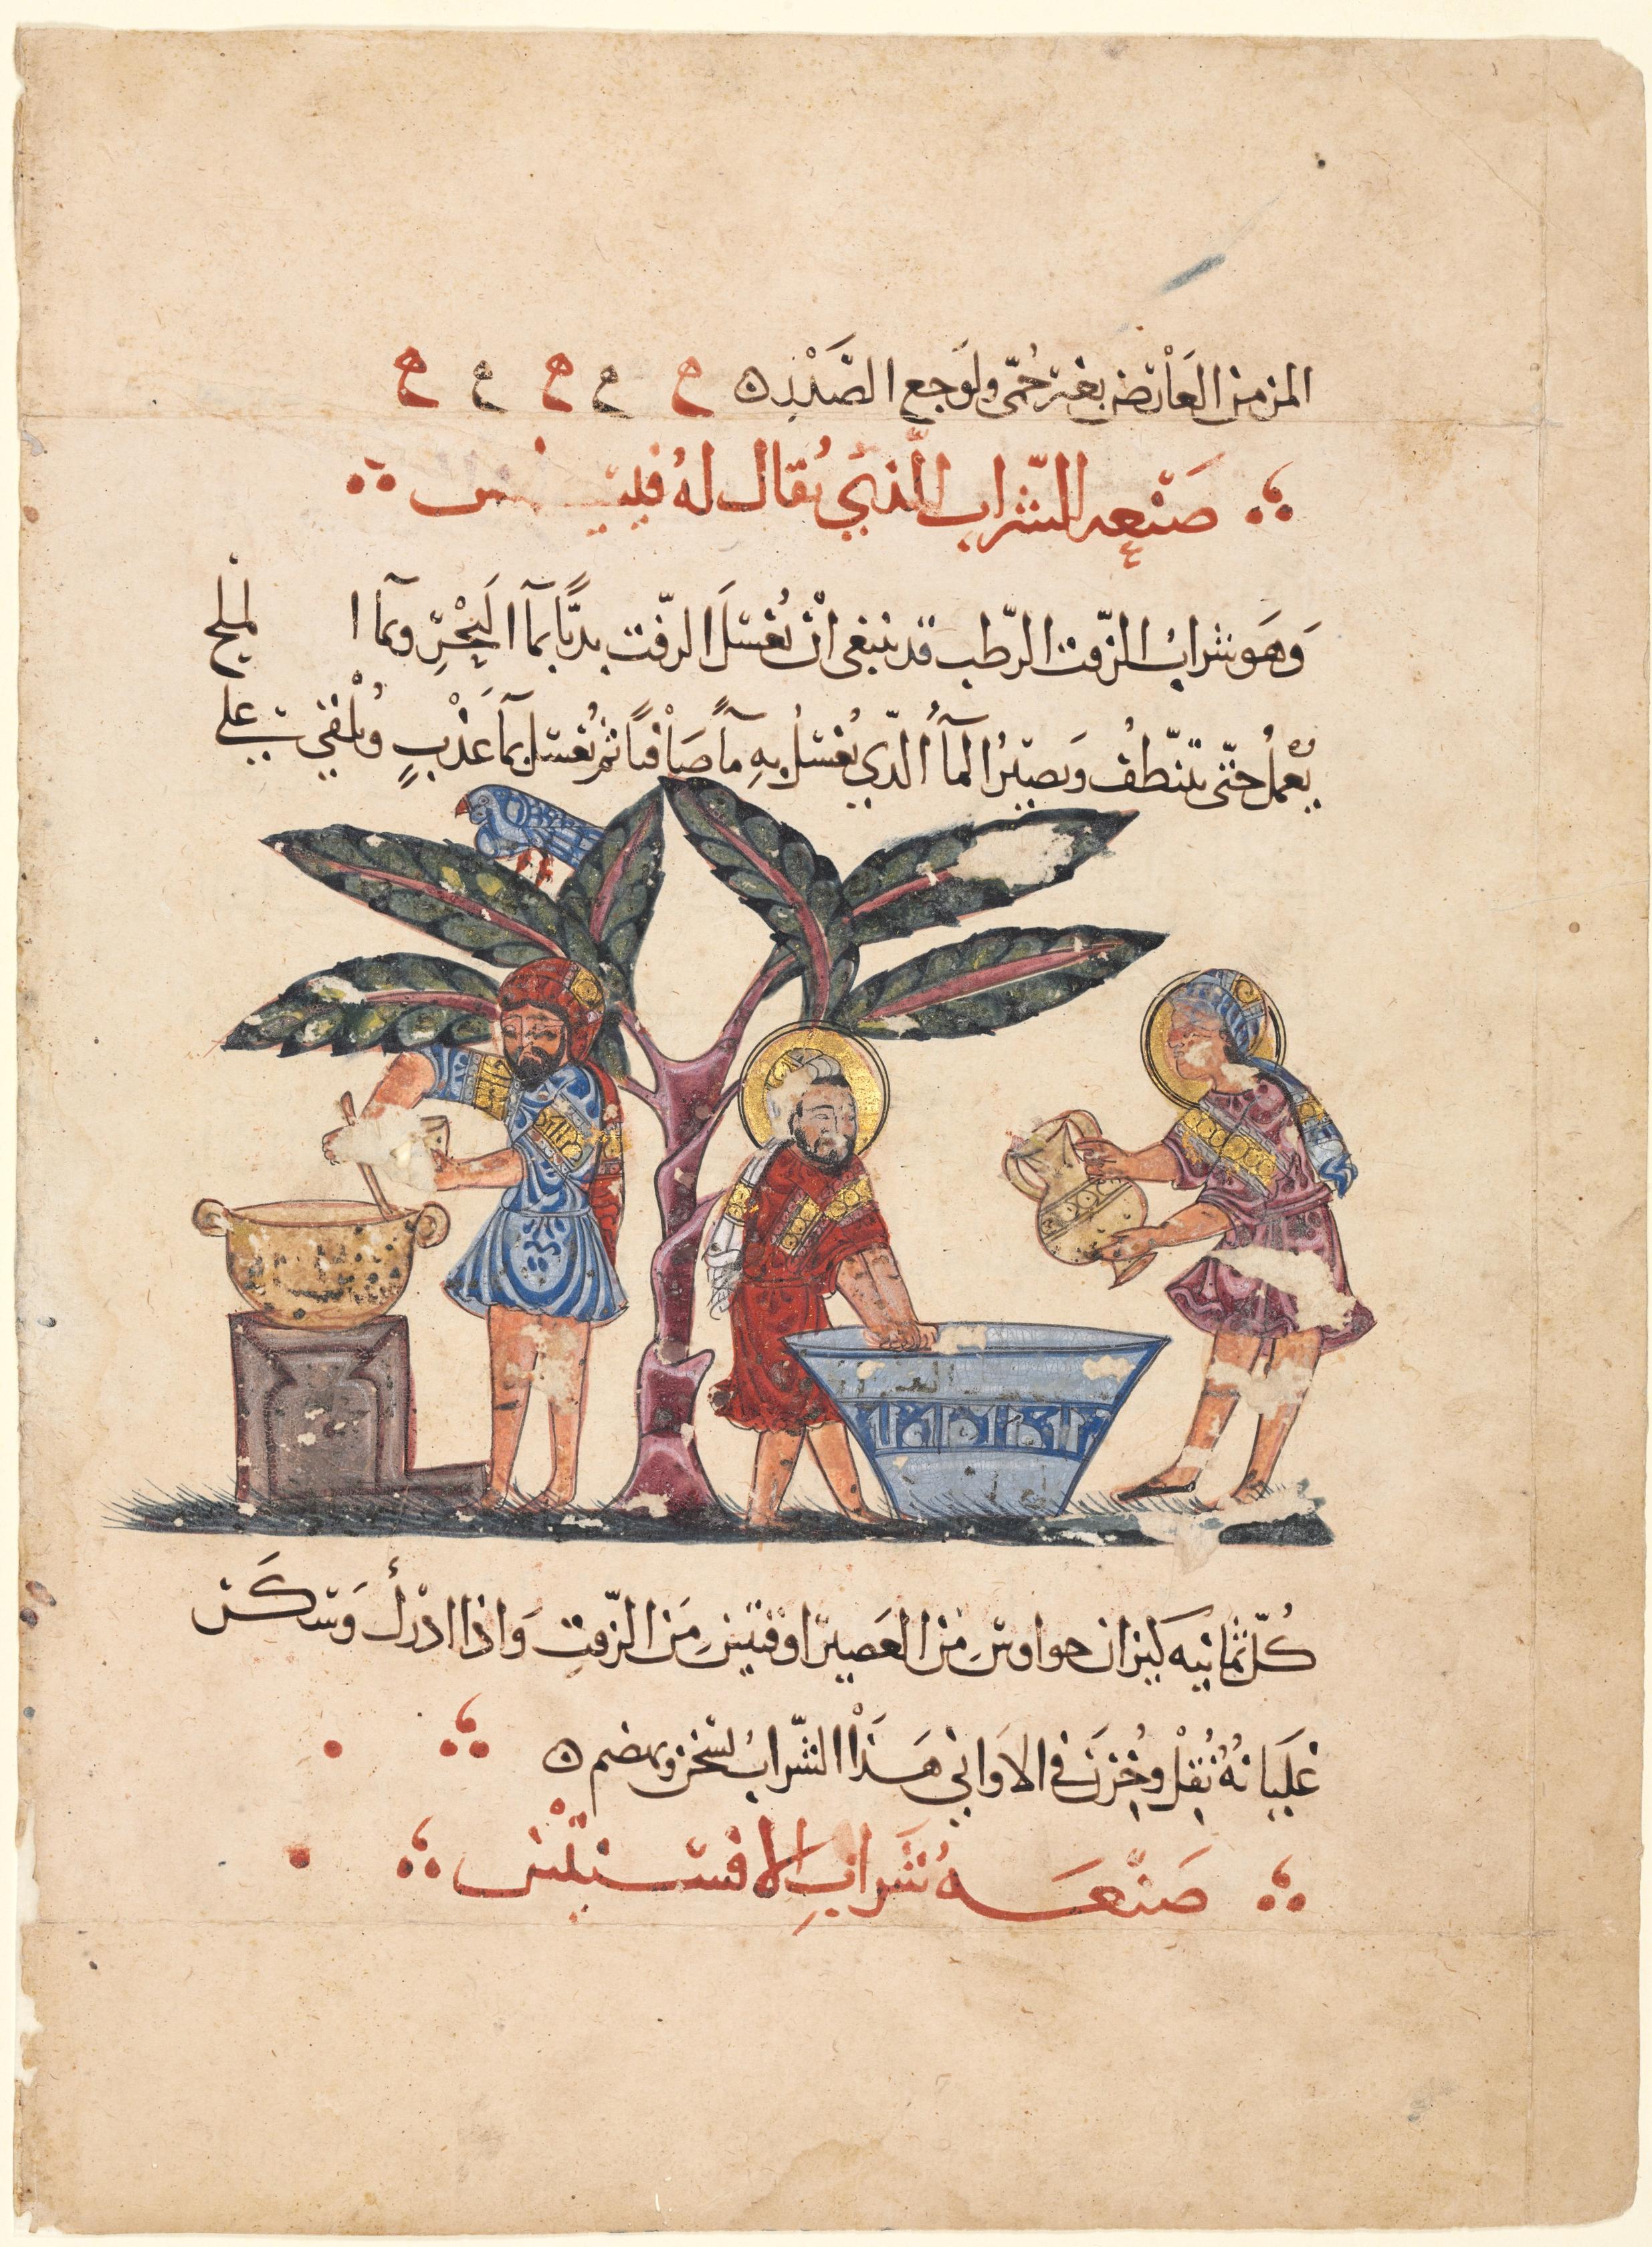 المزمن العارض بغير حمى ولوجع الصدر
صنعه للشراب الذي يقال له
وهو شراب الزفت الرطب قد ينبغي ان يغسل الزفت بديا بمآ البحر وبمآ الملح
يعمل حتى يتنظف ويصير المآ الذي يغسل به مآ صافيا ثم يغسل بمآ عذب ويلقى على
كل ثمانيه كيزان من العصير اوقيتين من الزفت واذا ادرك وسكن
غليانه نقل وخزن في الاواني هذا الشراب يسخن ويهضم
صنعه شراب الافسنتين